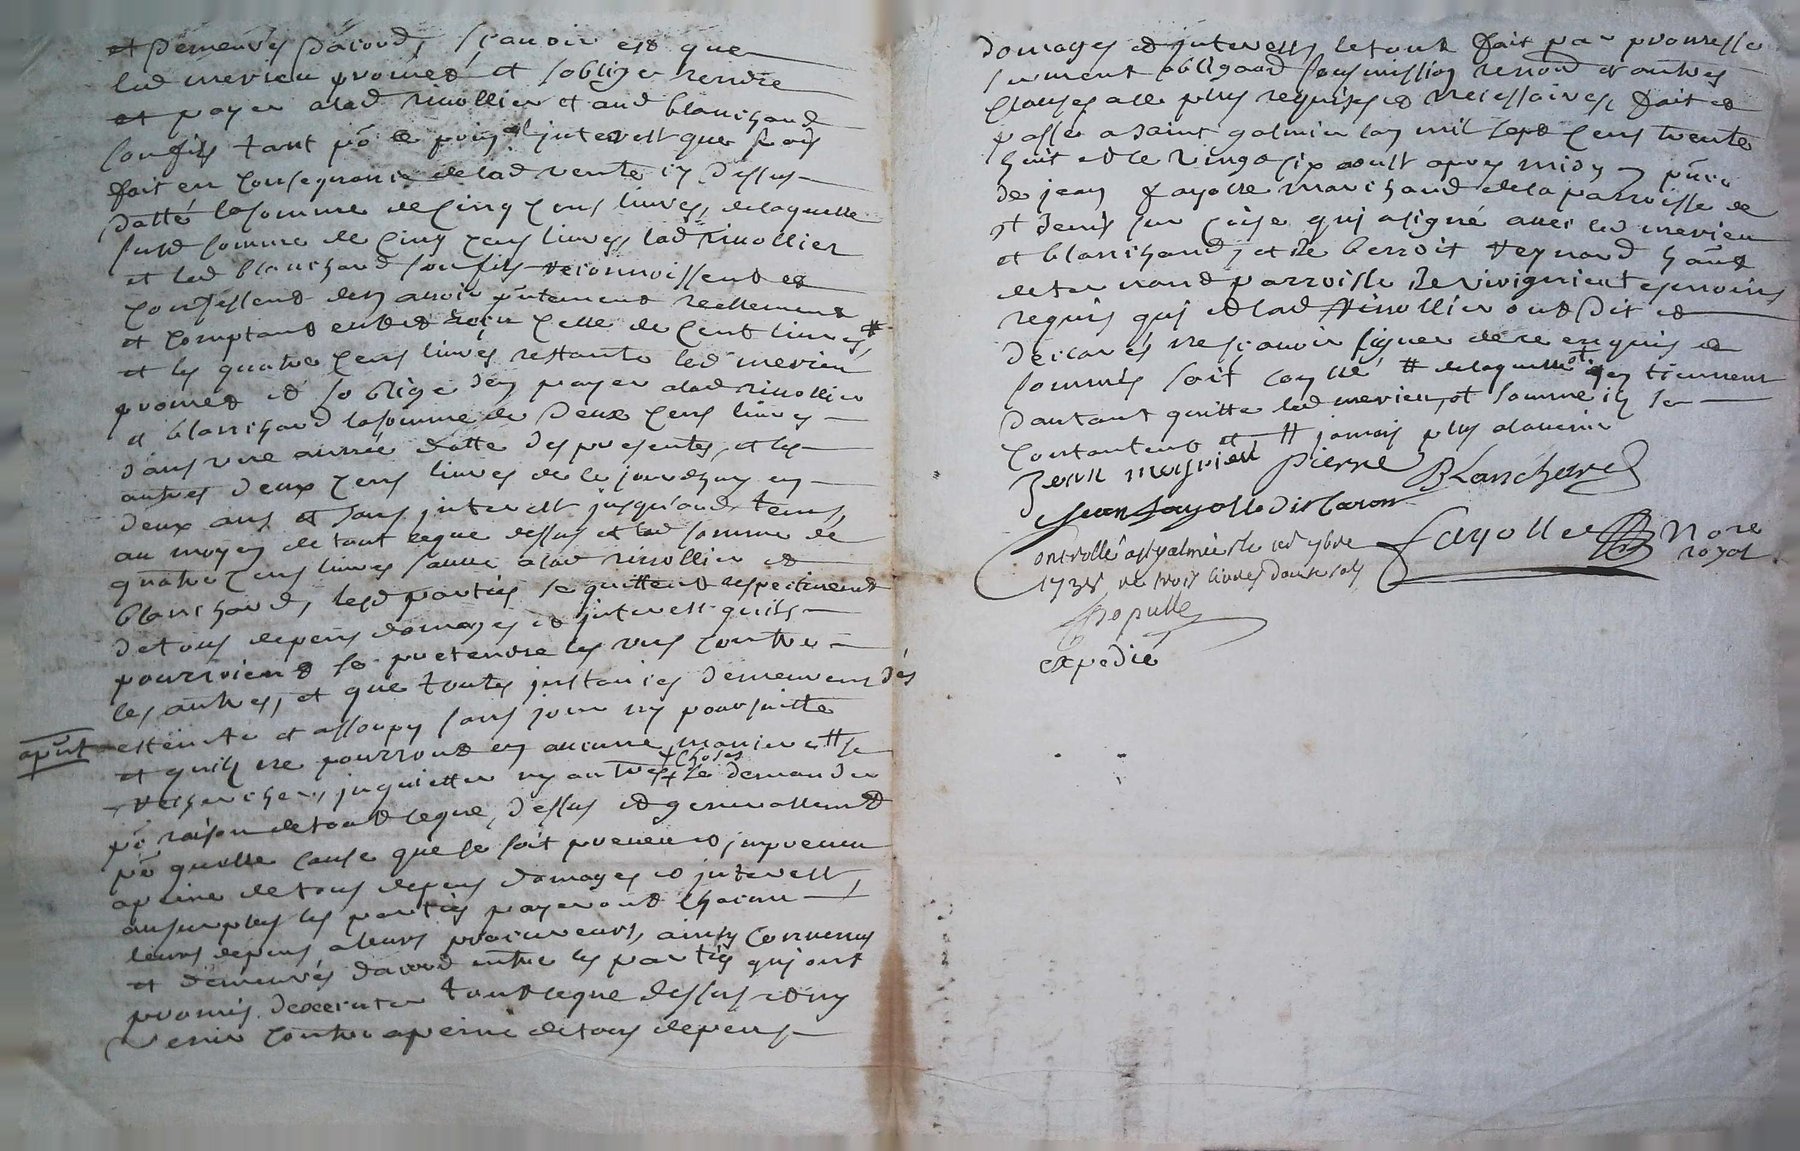 et demeurés dacord, scauoir est que
led merieu promet et soblige rendre
et payer alad rivollier et aud blanchard
son fils tant po le prinal interest que frais
fait en consequance de lad vente cy dessus
datté la somme de cinq cens livres, de laquelle
susd somme de cinq cens livres, lad rivollier
et led blanchard son fils reconnoissent et
confessent den auoir pntement reellement
et comptant eu et reçu celle de cent livres #
et les quatre cens livres restante led merieu
promet et soblige den payer alad rivollier
et blanchard la somme de deux cens livres
dans une année datte des presentes, et les
autres deux cens livres de ce jourdhuy en
deux ans et sans interest jusqu'aud tems,
au moyen de tout ceque dessus et lad somme de
quatre cens livres sauue alad rivollier et
blanchard, lesd parties se quittent respectivement
de tous depens domages et interest quils
pourroient se pretendre les uns contre
les autres, et que toutes instances demeurent dés
apnt esteinte et assoupy sans jour ny poursuitte
et quils ne pourront en aucune maniere # se
rechercher, inquietter ny autres choses se demander
po raison de tout ceque dessus et generallement
po quelle cause que se soit preveue et impreveu
apeine de tous depens domages et interest,
au surplus les parties payeront chacun
leurs depens a leurs procureurs, ainsy convenus
et demeurés dacord entre les parties qui ont
promis dexecuter tout ceque dessus et ny
venir contre apeine de tous depens
domages et interests, le tout fait par promesse
serment obligaon soumission renon et autres
clauses alle plus requises et necessaires, fait et
passé a saint galmier lan mil sept cens trente
huit et le vingt six aoust apres midy pnce
de jean fayolle marchand de la parroisse de
st denis sur coise qui a signé avec led merieu
et blanchard, et de benoit reynard hant
de ternand parroisse de virigneu tesmoins
requis qui et lad rivollier ont dit et
declarés ne scauoir signer de ce enquis et
sommés soit conllé # de laquelle ot en tiennent
dautant quitte led merieu, et somme ils se
contantent et # jamais plus alauenir
Jean meyrieu pierre Blanchard
Jean fayolle dit Caron
Fayolle Nore royal
Controllé a st galmier le 7bre
1738 re trois livres douze sols
Populle
expedié